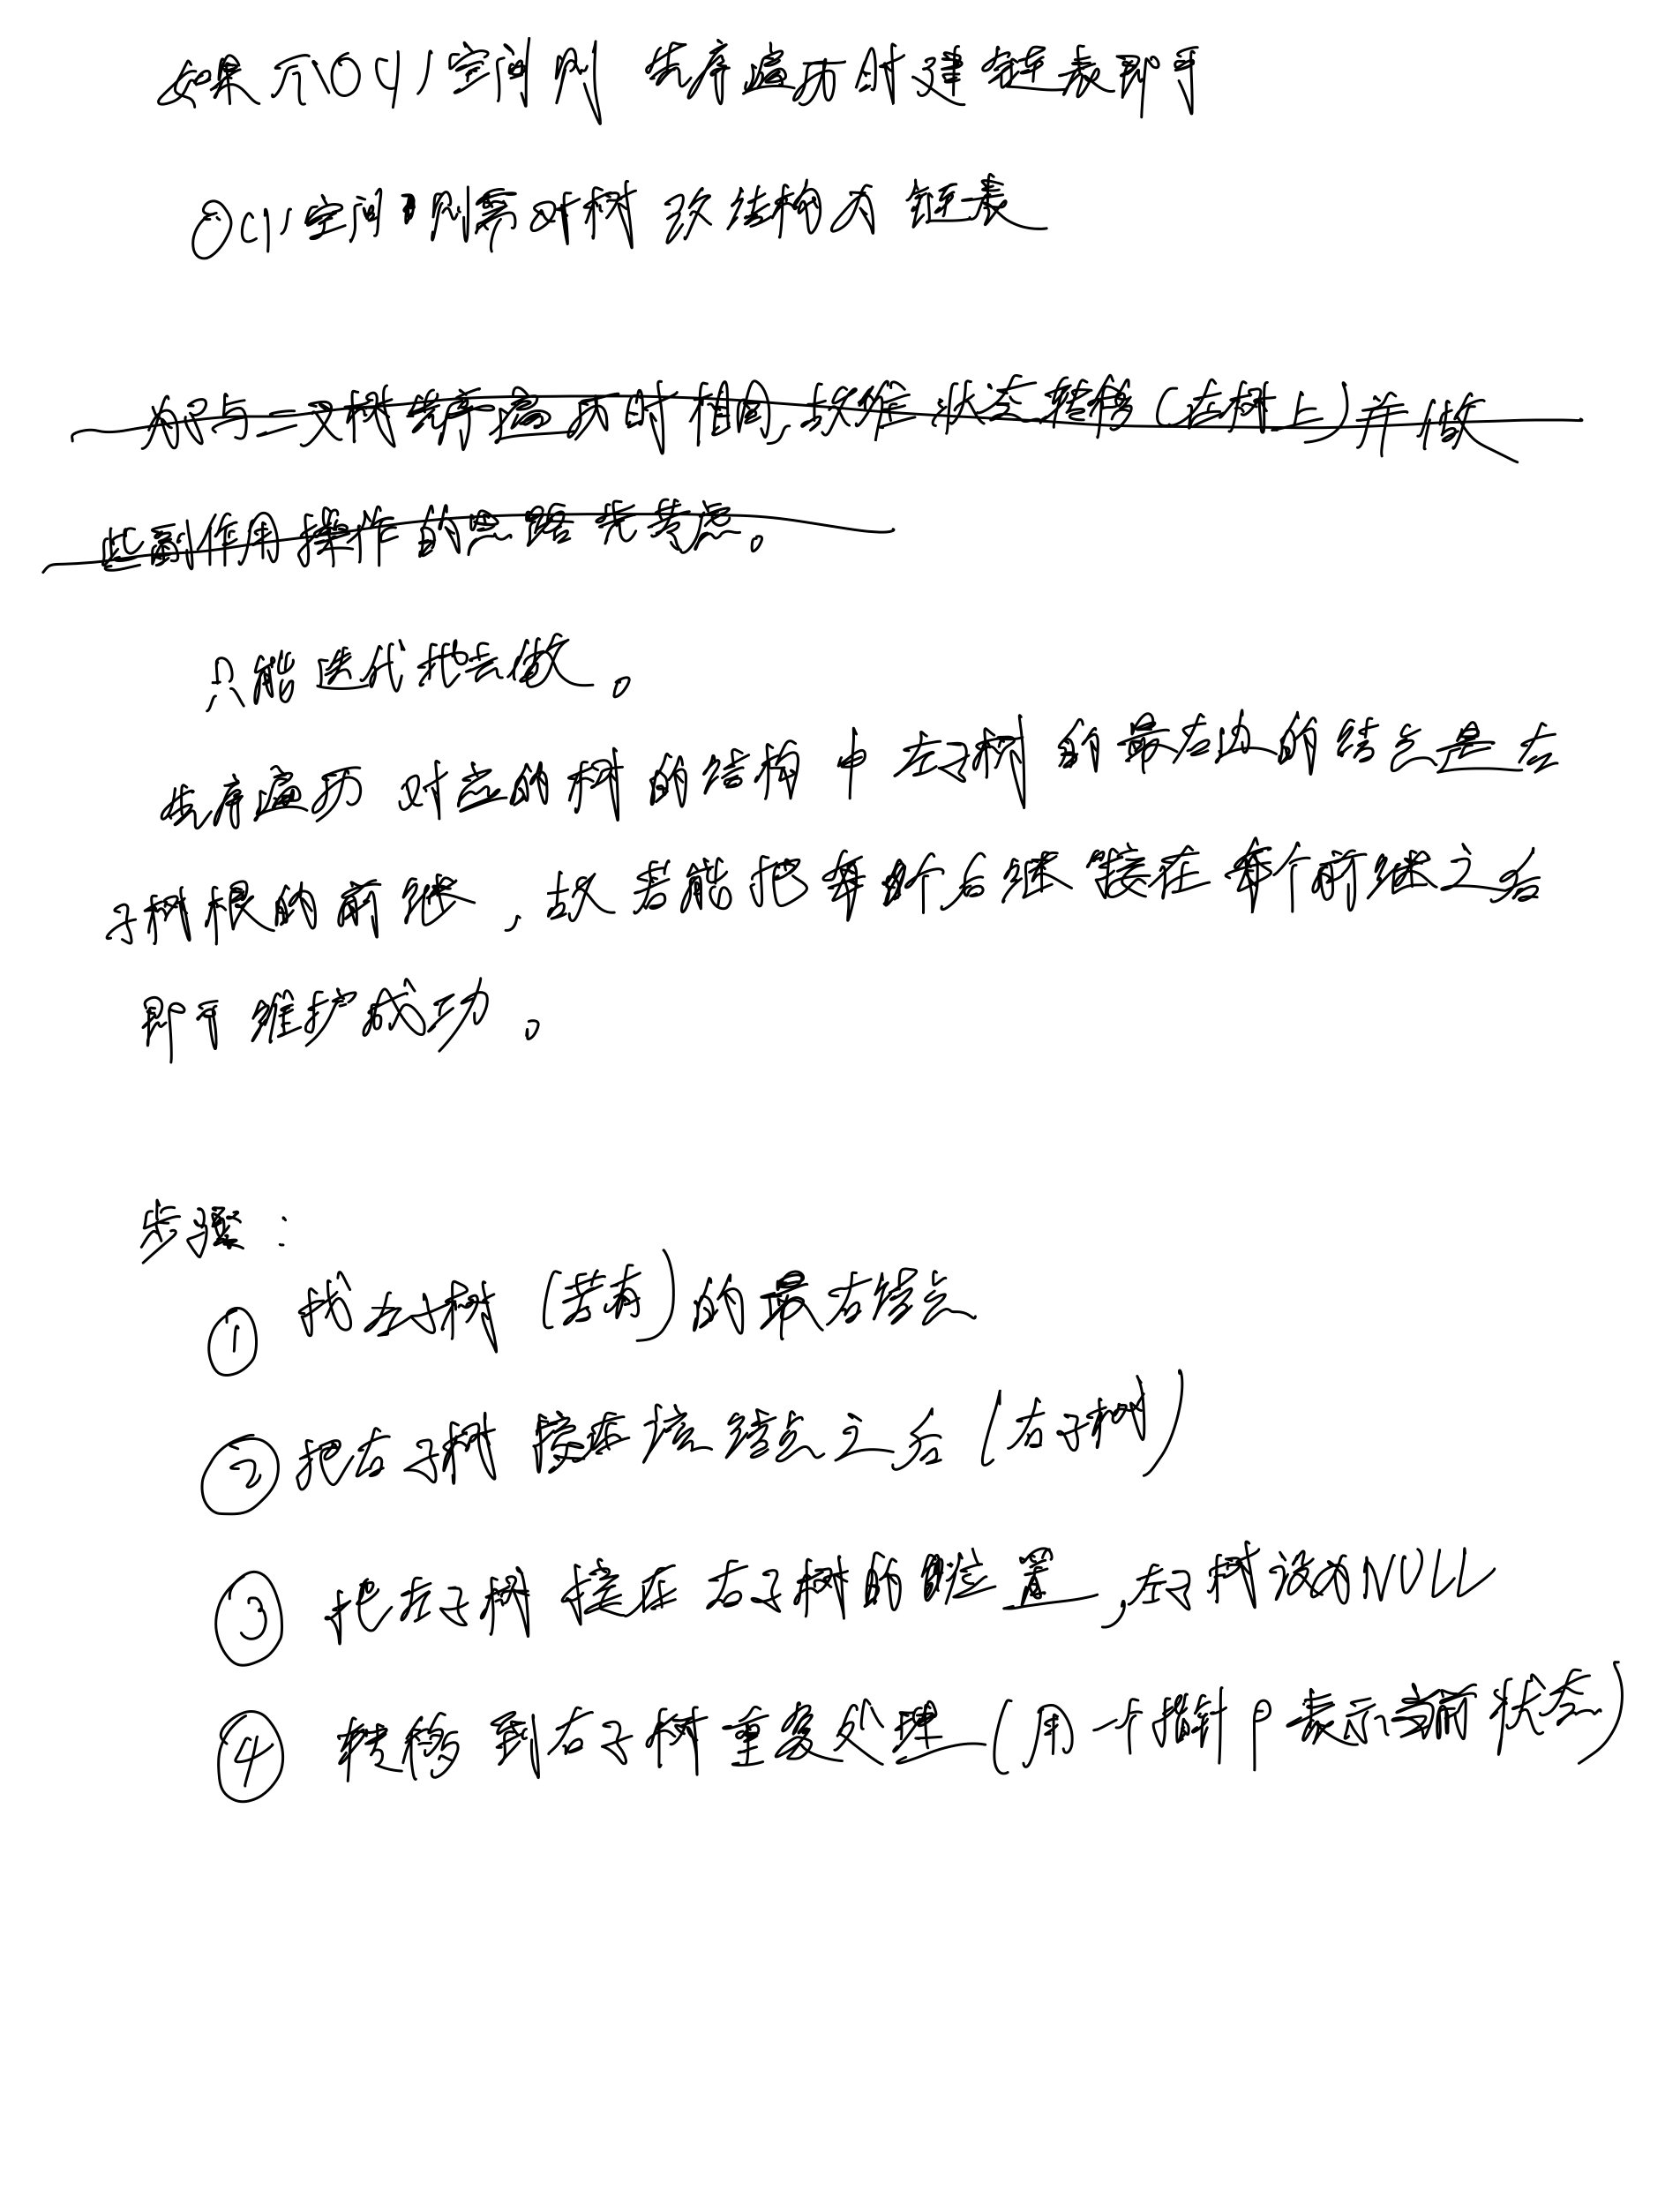 如果不O(1)空间则 先序遍历时建链表即可
O(1)空间则需对树改结构为链表
为了与二叉树先序遍历时相同,故作状态转移(在树上)并做
些副作用操作的思路先考虑。
只能迭代地去做。
先序遍历对应的树的结构中左子树的最右边的结点是右
子树根的前继,故若能把每个后继接在每个前继之后
即可维护成功。
步骤:
① 找左子树(若有)的最右结点
② 把右子树接在该结点之后(右子树)
③ 把左子树接在右子树的位置,左子树设为NULL
④ 转移到右子树重复处理(用一个指针p表示当前状态)